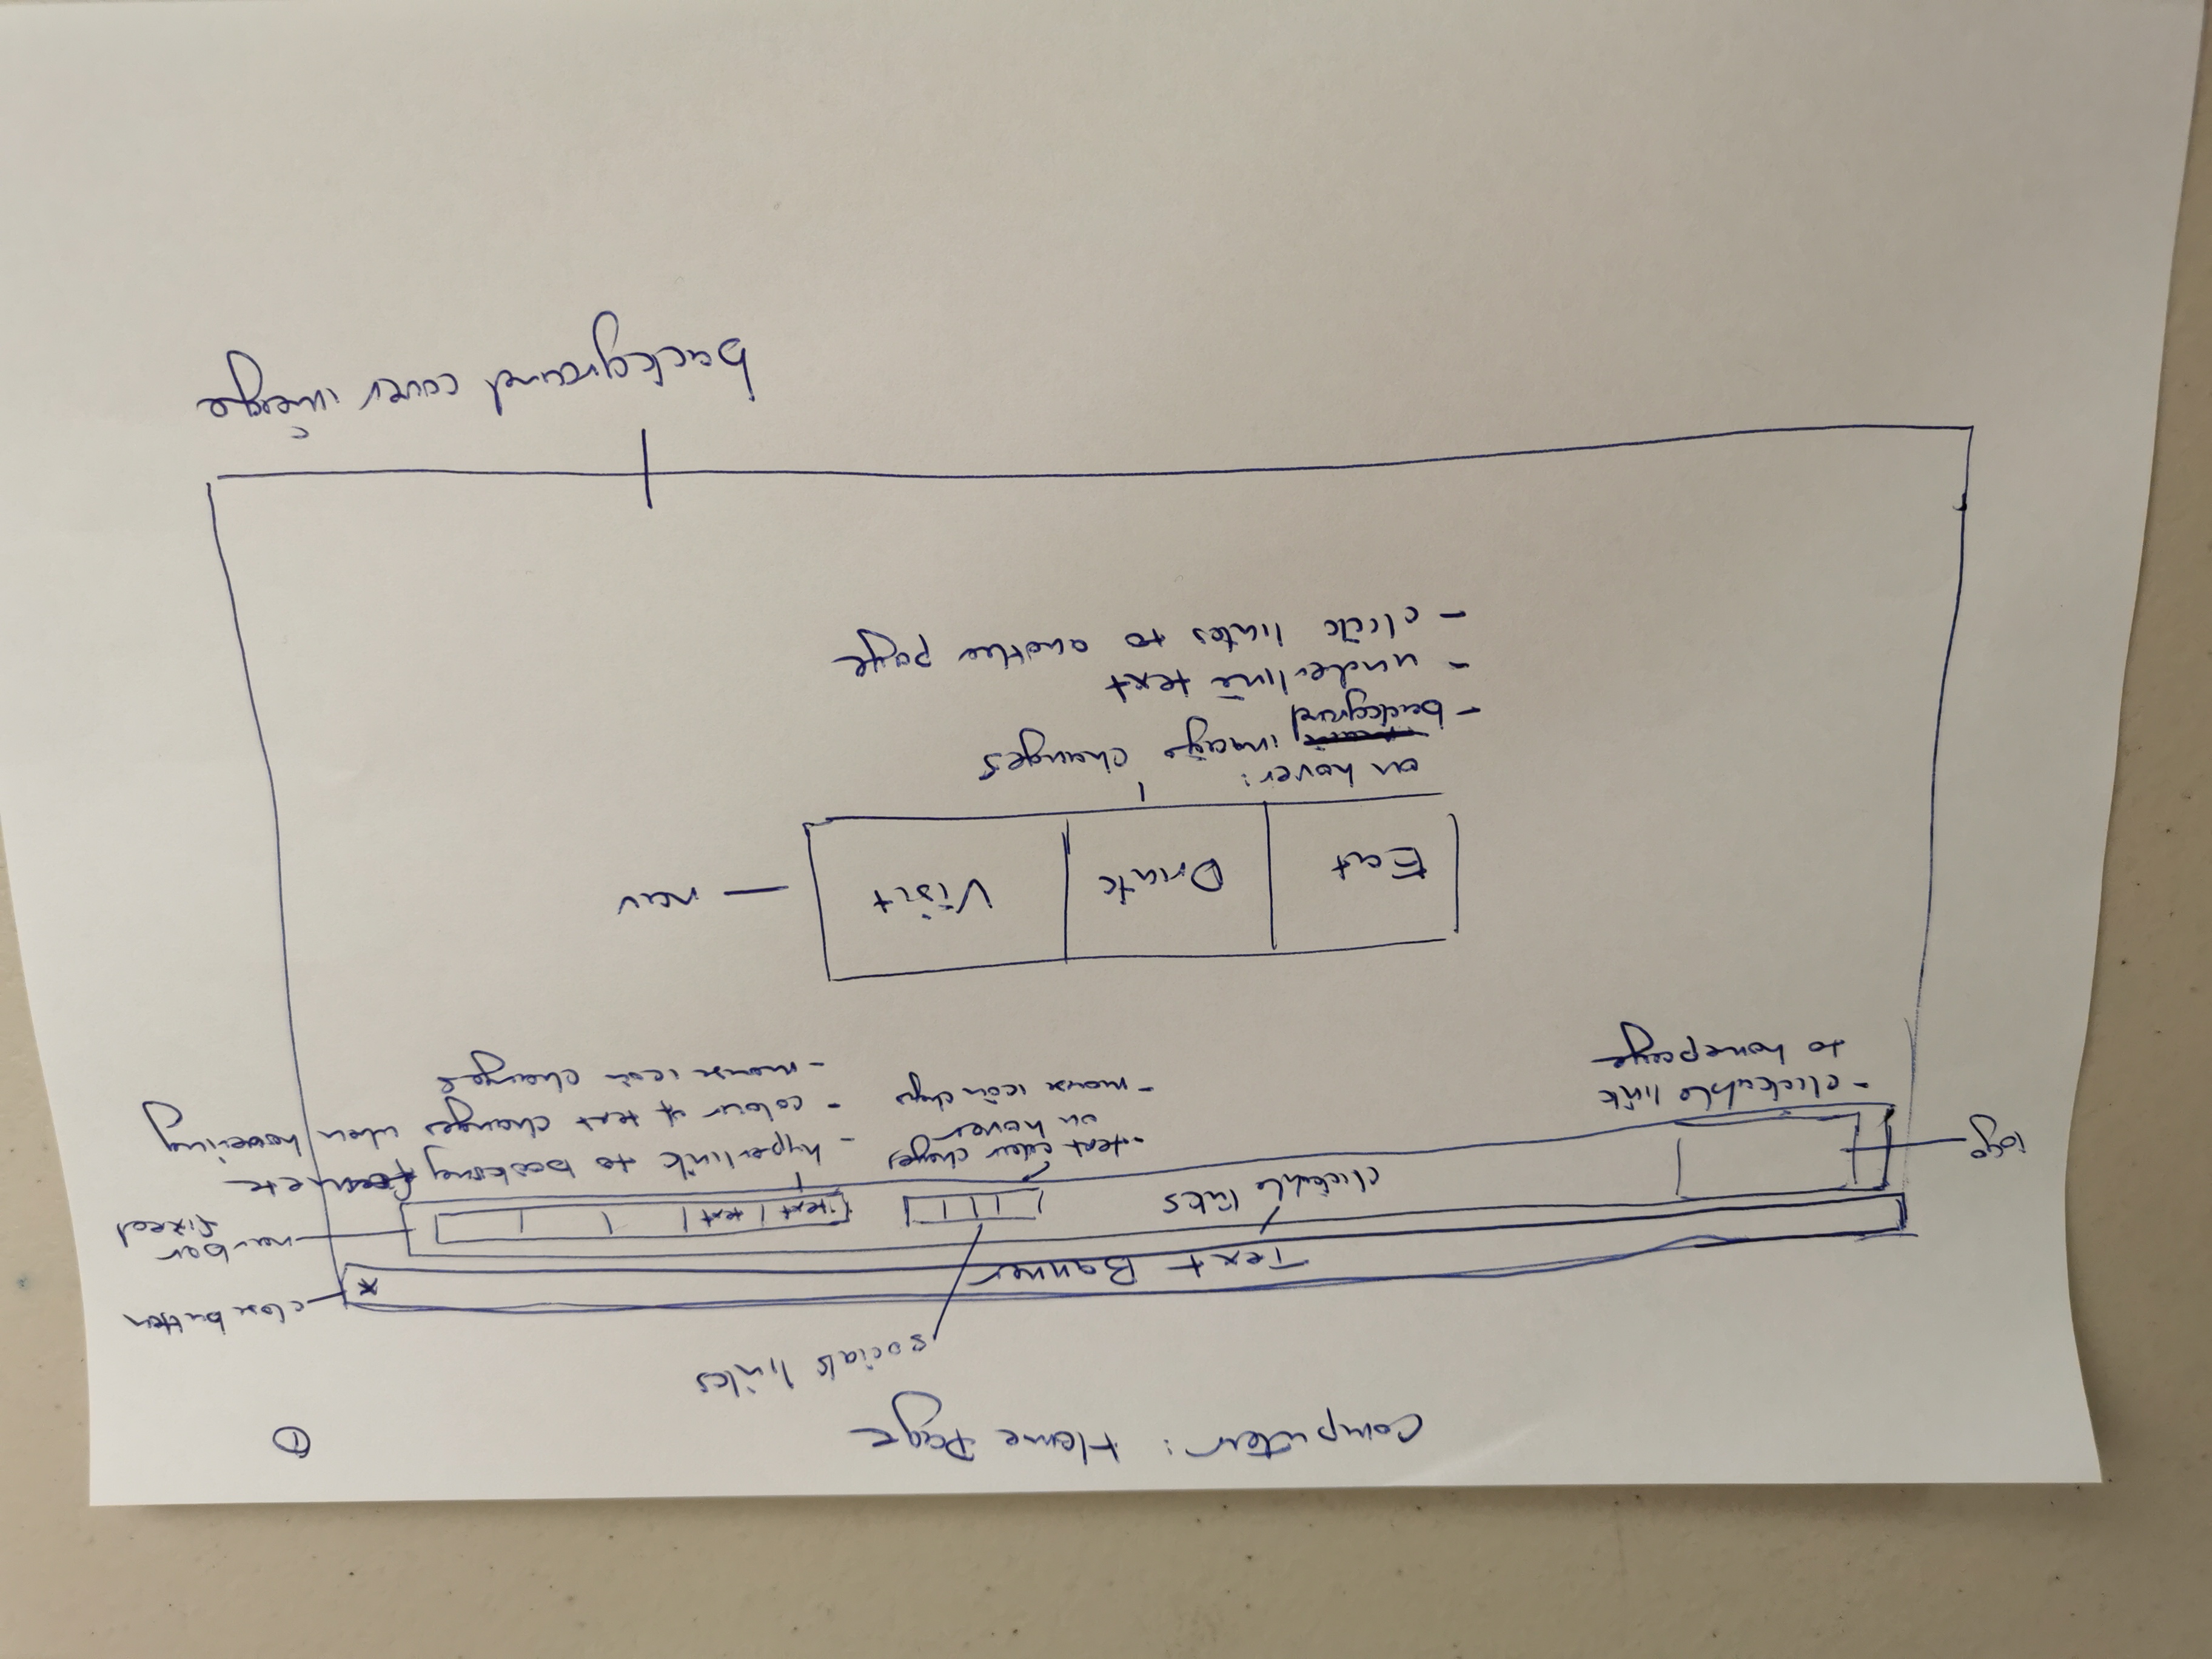 Computer: Home Page
①
socials links
close button
Text Banner
x
navbar
fixed
clickable links
text
text
logo
- clickable link
to homepage
- text colour changes
on hover
- mouse icon
- hyperlink to booking etc
- colour of text changes when hovering
- mouse icon changes
Eat
Drink
Visit
nav
on hover:
image changes
- background
- underline text
- click links to another page
background cover image